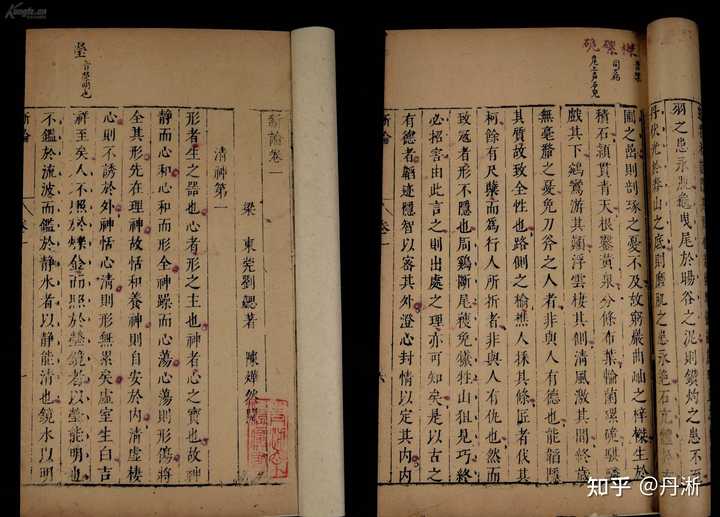 Kongfz.cn
瑩 音榮明也
新論卷一
梁 東莞劉勰著 陳燁然
清神第一
形者生之器也心者形之主也神者心之寶也故神
靜而心和心和而形全神躁而心蕩心蕩則形傷將
全其形先在理神故恬和養神則自安於内清虛棲
心則不誘於外神恬心清則形無累矣虛室生白吉
祥至矣人不照於爍金而照於瑩鏡者以瑩能明也
不鑑於流波而鑑於靜水者以靜能清也鏡水以明
新論 卷一 一
羽之患永淵龜曳尾於暘谷之泥則鑽灼之患不
丹伏光於舂山之底則磨肌之患永絕石亢體
囿之嵒則剖琢之憂不及故窮巖曲岫之梓傑生於
積石穎貫青天根鑿黃泉分條布葉輪菌磥硊騏驎
戲其下鵷鸞游其顛浮雲棲其側清風激其間終歲
無毫釐之憂免刀斧之人者非與人有德也能隱
其質故致全性也路側之榆樵人採其條匠者伐其
柯餘有尺蘖而爲行人所折者非與人有仇也然而
致寇者形不隱也周鷄斷尾獲免犧牲山狙見巧終
必招害由此言之則出處之理亦可知矣是以古之
有德者韜迹隱智以審其外澄心封情以定其内内
新論 卷一 六
知乎 @丹淅